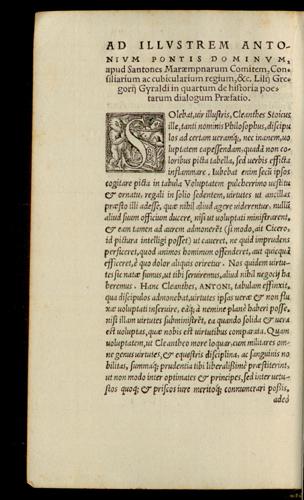 AD ILLVSTREM ANTO-
NIVM PONTIS DOMINVM,
apud Santones Maræmpnarum Comitem, Con-
siliarium ac cubicularium regium, &c. Lilij Gre-
gorij Gyraldi in quartum de historia poë-
tarum dialogum Præfatio.
SOlebat, uir illustris, Cleanthes Stoicus
ille, tanti nominis Philosophus, discipu
los ad certam ueramq́;, nec inanem, uo
luptatem capessendam, quadã non co-
loribus picta tabella, sed uerbis efficta
inflammare. Iubebat enim secũ ipsos
cogitare picta in tabula Voluptatem pulcherrimo uestitu
& ornatu, regali in solio sedentem, uirtutes ut ancillas
præsto illi adesse, quæ nihil aliud agere uiderentur, nullũ
aliud suum officium ducere, nisi ut uoluptati ministrarent,
& eam tamen ad aurem admonerẽt (si modo, ait Cicero,
id pictura intelligi posset) ut caueret, ne quid imprudens
perficeret, quod animos hominum offenderet, aut quicquã
efficeret, è quo dolor aliquis oriretur. Nos quidem uirtu-
tes sic natæ sumus, ut tibi seruiremus, aliud nihil negocij ha
beremus. Hanc Cleanthes, ANTONI, tabulam effinxit,
qua discipulos admonebat, uirtutes ipsas ueræ & non flu-
xæ uoluptati inseruire, eãq́; à nemine planè haberi posse,
nisi illam uirtutes subministrẽt, ea quando solida & uera
est uoluptas, quæ nobis est uirtutibus comparata. Quam
uoluptatem, ut Cleantheo more loquar, cum militares om-
ne genus uirtutes, & equestris disciplina, ac sanguinis no
bilitas, summaq́; prudentia tibi liberalißimè præstiterint,
ut non modo inter optimates & principes, sed inter uetu-
stos quoq; & priscos iure meritoq́; connumerari poßis,
adeò